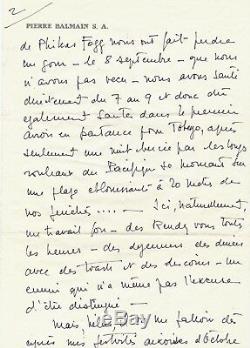 2
PIERRE BALMAIN S. A.
de Phileas Fogg nous ont fait perdre
un jour - le 8 septembre - que nous
n'avons pas vécu - nous avons sauté
directement du 7 au 9 et donc été
également sautés dans le premier
avion en partance pour Tokyo, après
seulement une nuit bercée par les longs
rouleaux du Pacifique se mourant sur
une plage éblouissante à 20 mètres de
nos fenêtres..... - Ici, naturellement,
un travail fou - des Rendez vous toutes
les heures - des déjeuners des diners
avec des toasts et des discours - un
ennui qui n'a même pas l'excuse
d'être distingué -
Mais, hélas, il me fallait dès
après mes activités d'Octobre
ebay